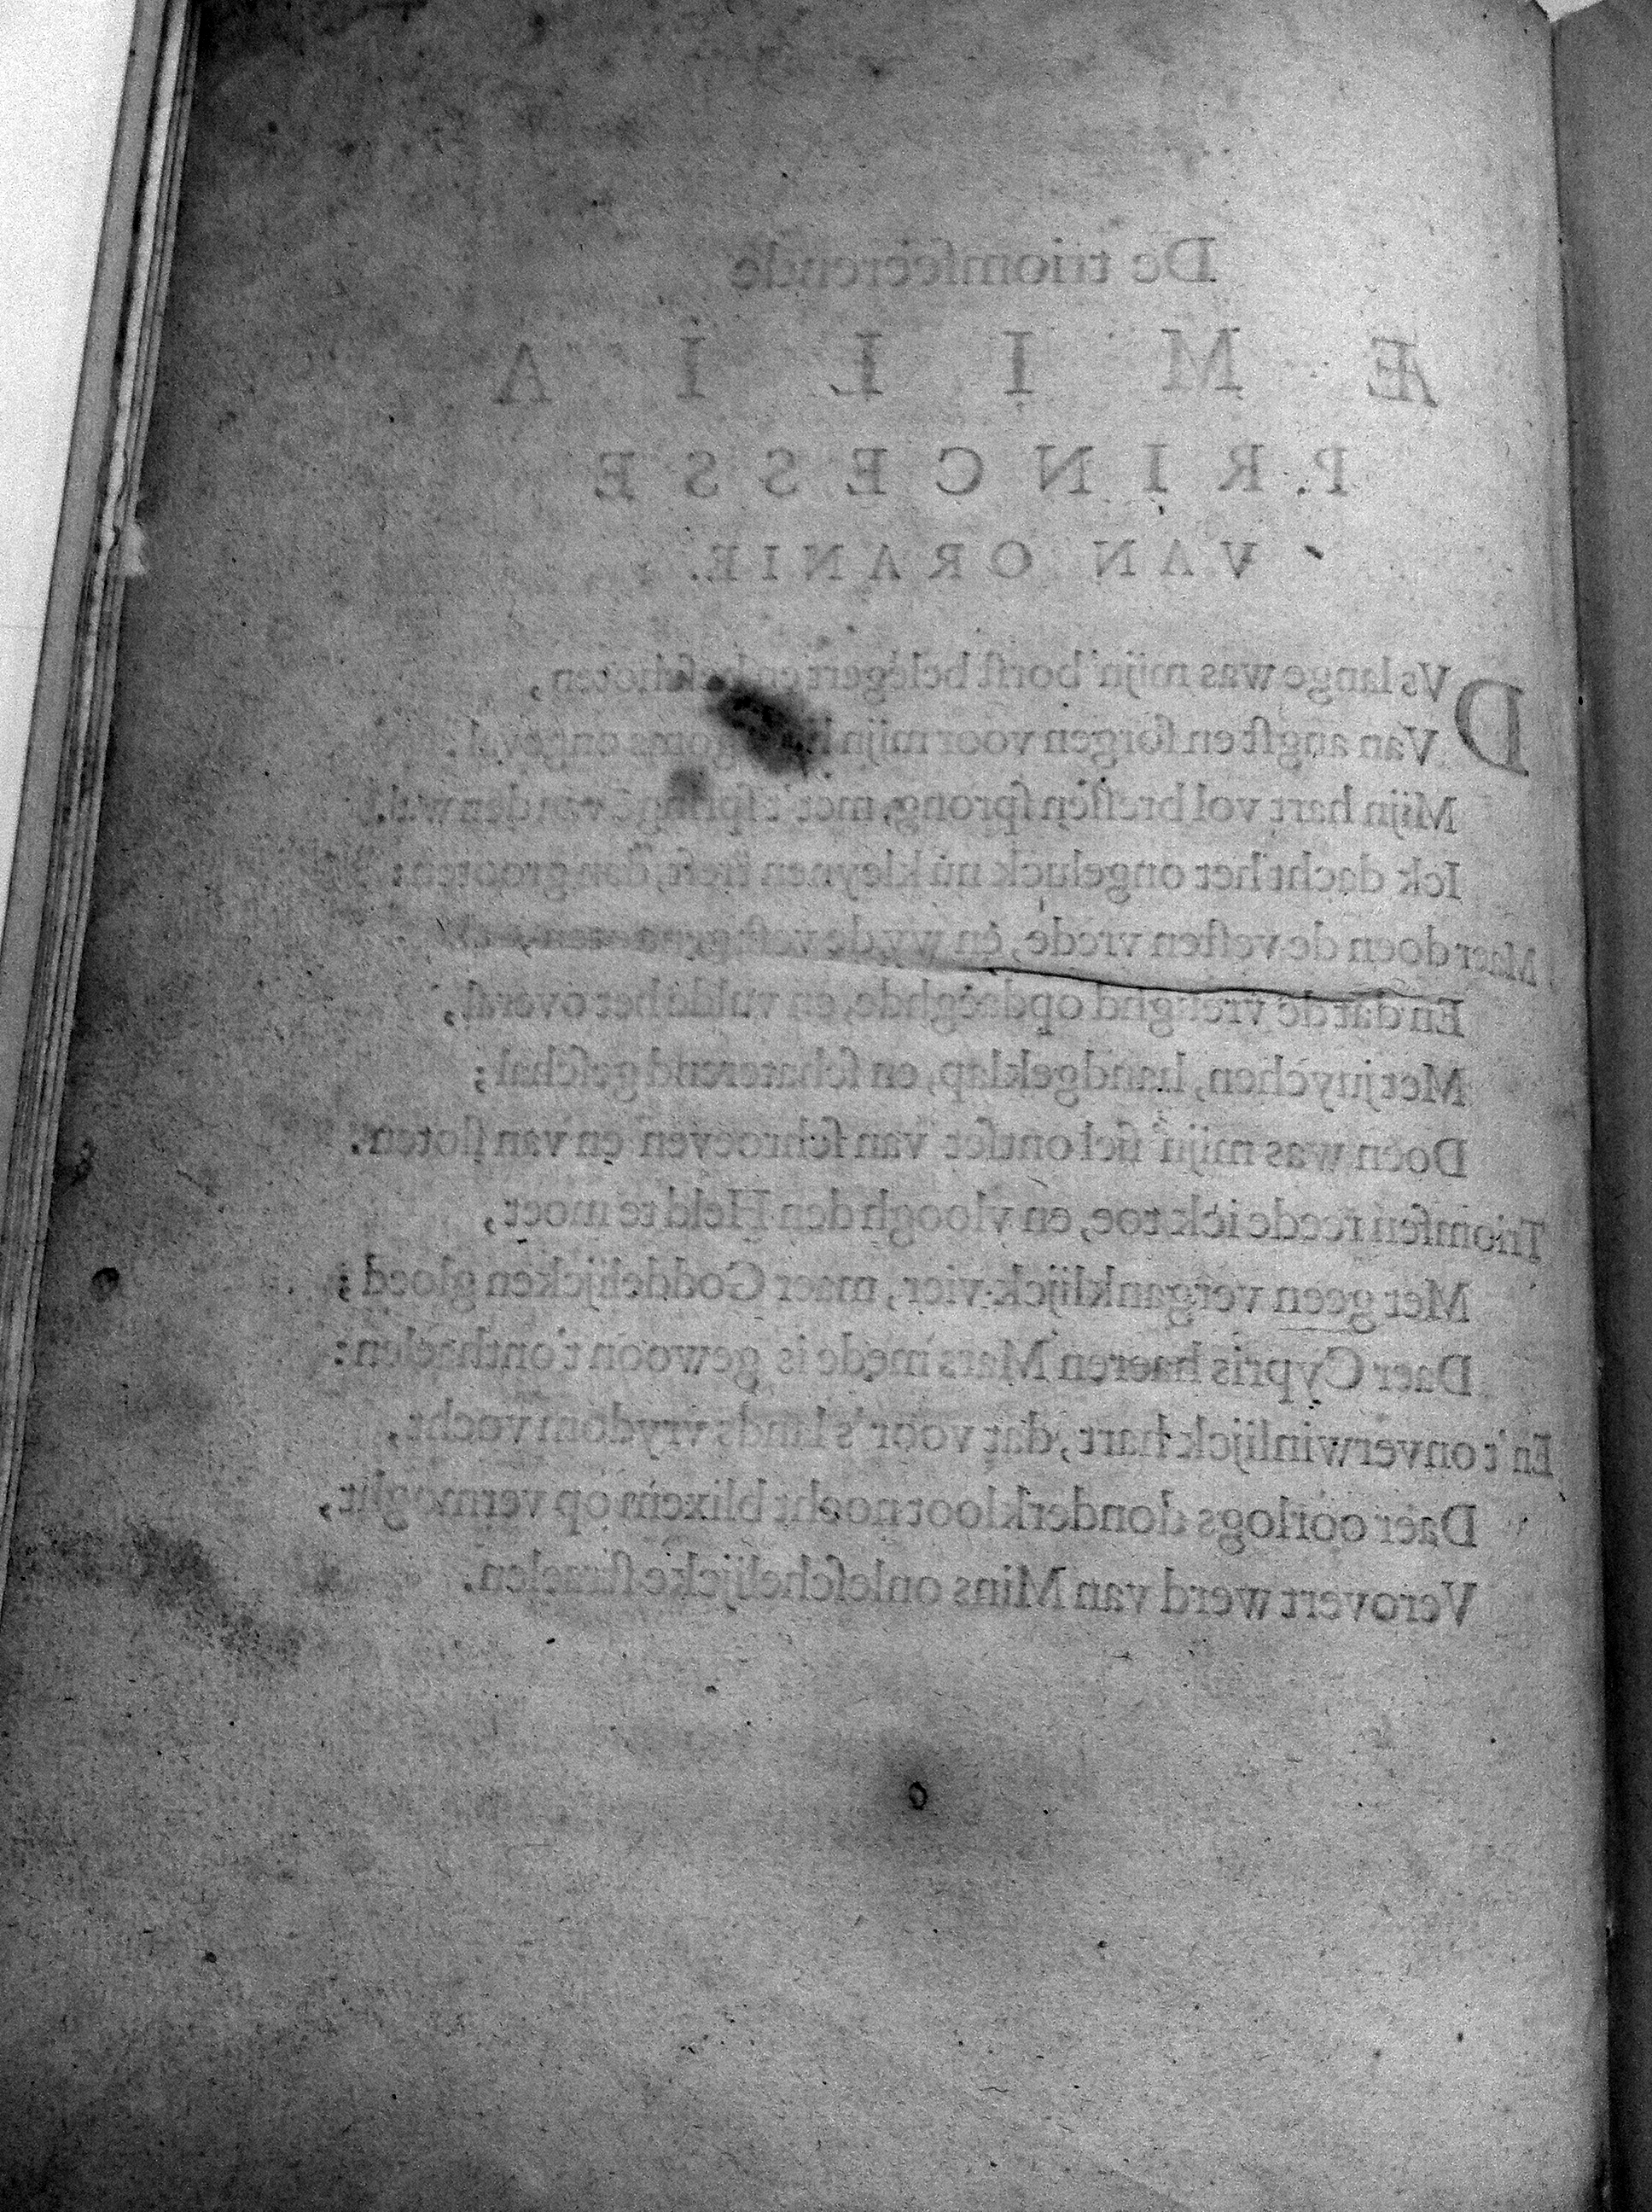 De triomfeerende
ÆMILIA
PRINCESSE
VAN ORANIE.
DVs lange was mijn borſt belegert en beſchoten,
Van angſt en ſorgen voor mijn ongeval.
Mijn hart vol breſſen ſprong, met 't ſpringen van den wal.
Ick dacht het ongeluck nu kleynen treft, dan grooten:
Maer doen de veſten vrede, en wy de veſt
En dat de vreughd opdaeghde, en vulde het overal,
Met juychen, handgeklap, en ſchaterend geſchal;
Doen was mijn ſiel ontſet van ſchroeven en van ſloten.
Triomfen reede ick toe, en vloogh den Held te moet,
Met geen verganklijck vier, maer Goddelijcken gloed;
Daer Cypris haeren Mars mede is gewoon t'onthaelen:
En 't onverwinlijck hart, dat voor 's lands vrydom vocht,
Daer oorlogs donderkloot noch blixem op vermoght,
Verovert werd van Mins onleſchelijcke ſtraelen.